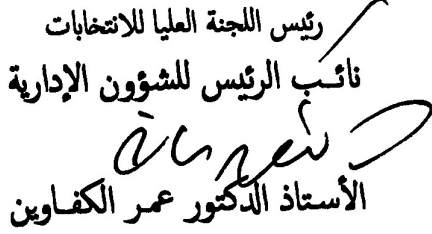 رئيس اللجنة العليا للانتخابات
نائب الرئيس للشؤون الإدارية
الأستاذ الدكتور عمر الكفاوين